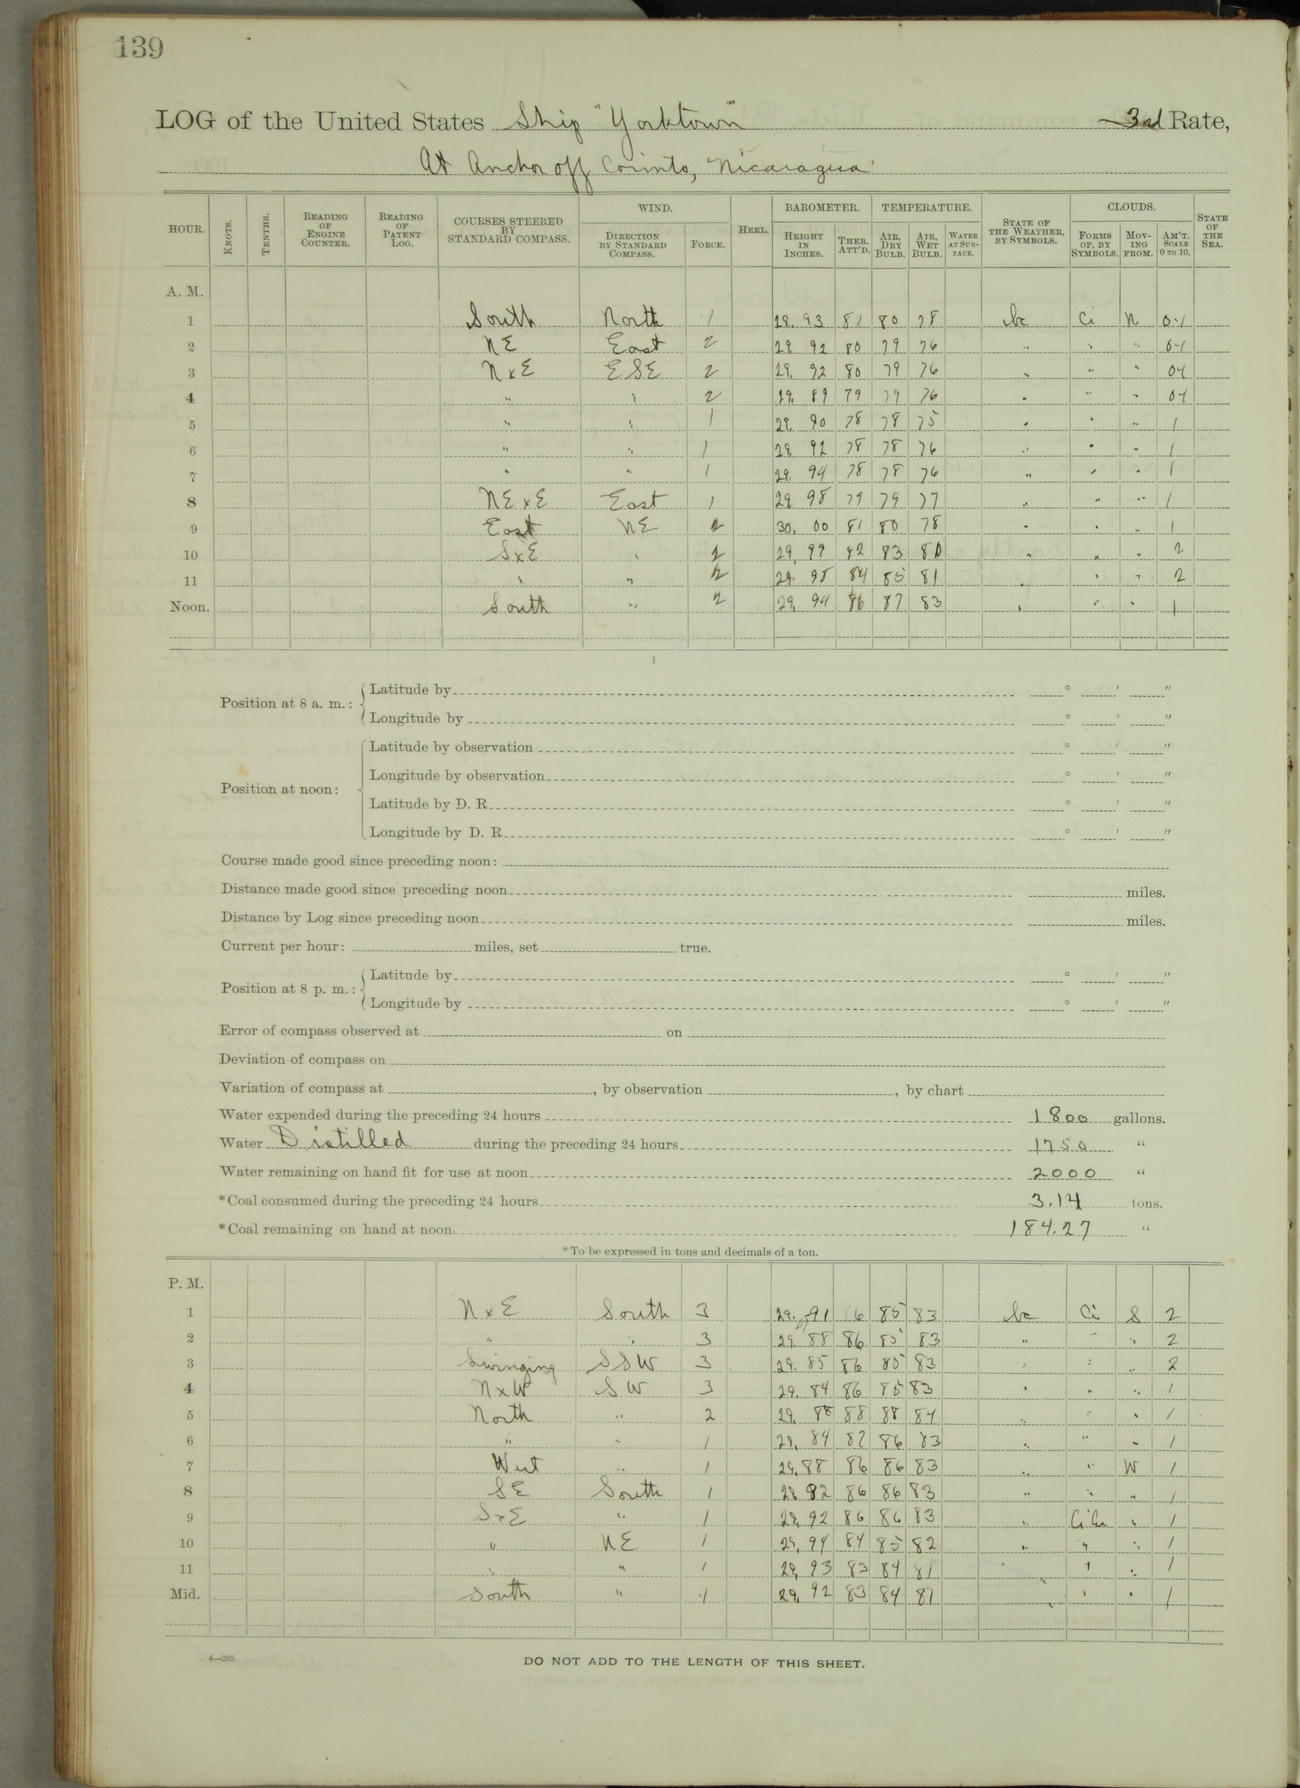 139
LOG of the United States Ship "Yorktown" 3rd Rate,
At Anchor off Corinto, Nicaragua
HOUR. KNOTS. TENTHS. READING OF ENGINE COUNTER. READING OF PATENT LOG. COURSES STEERED BY STANDARD COMPASS. WIND. DIRECTION BY STANDARD COMPASS. FORCE. HEEL. BAROMETER. HEIGHT IN INCHES. THER. ATT'D. TEMPERATURE. AIR, DRY BULB. AIR, WET BULB. WATER AT SURFACE. STATE OF THE WEATHER, BY SYMBOLS. CLOUDS. FORMS OF, BY SYMBOLS. MOVING FROM. AM'T. SCALE 0 TO 10. STATE OF THE SEA.
A. M.
1 South North 1 29.93 81 80 78 bc Ci N 0-1
2 NE East 2 29 92 80 79 76 " " " 0-1
3 NxE ESE 2 29. 92 80 79 76 " " " 0-1
4 " " 2 29. 89 79 79 76 " " " 0-1
5 " " 1 29. 90 78 78 75 " " " 1
6 " " 1 29 92 78 78 76 " " " 1
7 " " 1 29. 94 78 78 76 " " " 1
8 NExE East 1 29 98 79 79 77 " " " 1
9 East NE 2 30. 00 81 80 78 " " " 1
10 SxE " 2 29. 99 82 83 80 " " " 2
11 " " 2 29. 95 84 85 81 " " " 2
Noon. South " 2 29. 94 86 87 83 " " " 1
Position at 8 a. m.: Latitude by ° ' "
Longitude by ° ' "
Position at noon: Latitude by observation ° ' "
Longitude by observation ° ' "
Latitude by D. R. ° ' "
Longitude by D. R. ° ' "
Course made good since preceding noon:
Distance made good since preceding noon miles.
Distance by Log since preceding noon miles.
Current per hour: miles, set true.
Position at 8 p. m.: Latitude by ° ' "
Longitude by ° ' "
Error of compass observed at on
Deviation of compass on
Variation of compass at , by observation , by chart
Water expended during the preceding 24 hours 1800 gallons.
Water Distilled during the preceding 24 hours 1750 "
Water remaining on hand fit for use at noon 2000 "
*Coal consumed during the preceding 24 hours 3.14 tons.
*Coal remaining on hand at noon 184.27 "
*To be expressed in tons and decimals of a ton.
P. M.
1 NxE South 3 29. 91 85 83 bc Ci S 2
2 " " 3 29 88 86 85 83 " " " 2
3 Swinging SSW 3 29. 85 86 85 83 " " " 2
4 NxW SW 3 29. 84 86 85 83 " " " 1
5 North " 2 29. 88 88 84 " " " 1
6 " " 1 29. 84 87 86 83 " " " 1
7 West " 1 29.88 86 86 83 " " W 1
8 SE South 1 29 92 86 86 83 " " " 1
9 SxE " 1 29.92 86 86 83 " CiCu " 1
10 " NE 1 29. 94 84 85 82 " " " 1
11 " " 1 29. 93 83 84 81 " " " 1
Mid. South " 1 29. 92 83 84 81 " " " 1
4—265
DO NOT ADD TO THE LENGTH OF THIS SHEET.